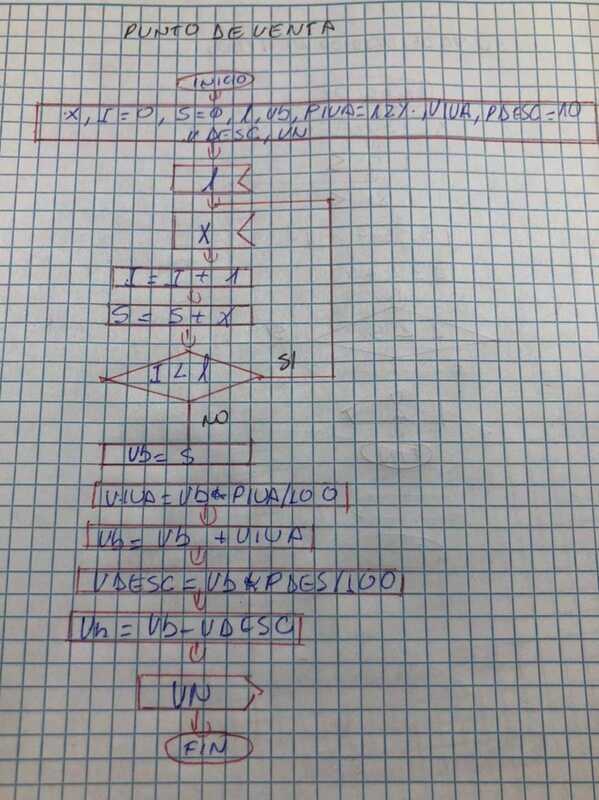 PUNTO DE VENTA
INICIO
X, I=0, S=0, l, Vb, PIVA=12%, VIVA, PDESC=10
VDESC, VN
l
X
I = I + 1
S = S + X
I < l
SI
NO
Vb = S
VIVA = Vb * PIVA/100
Vb = Vb + VIVA
VDESC = Vb * PDES/100
Vn = Vb - VDESC
VN
FIN